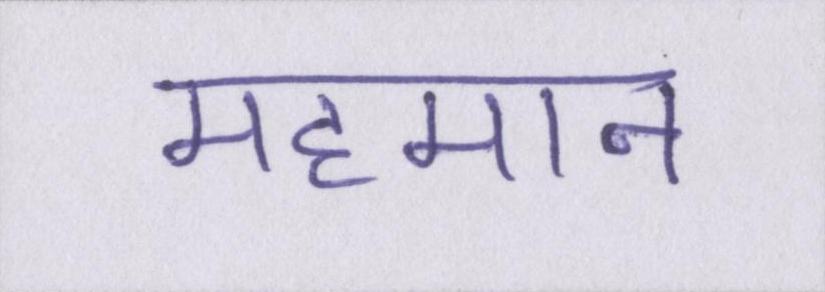 महमान